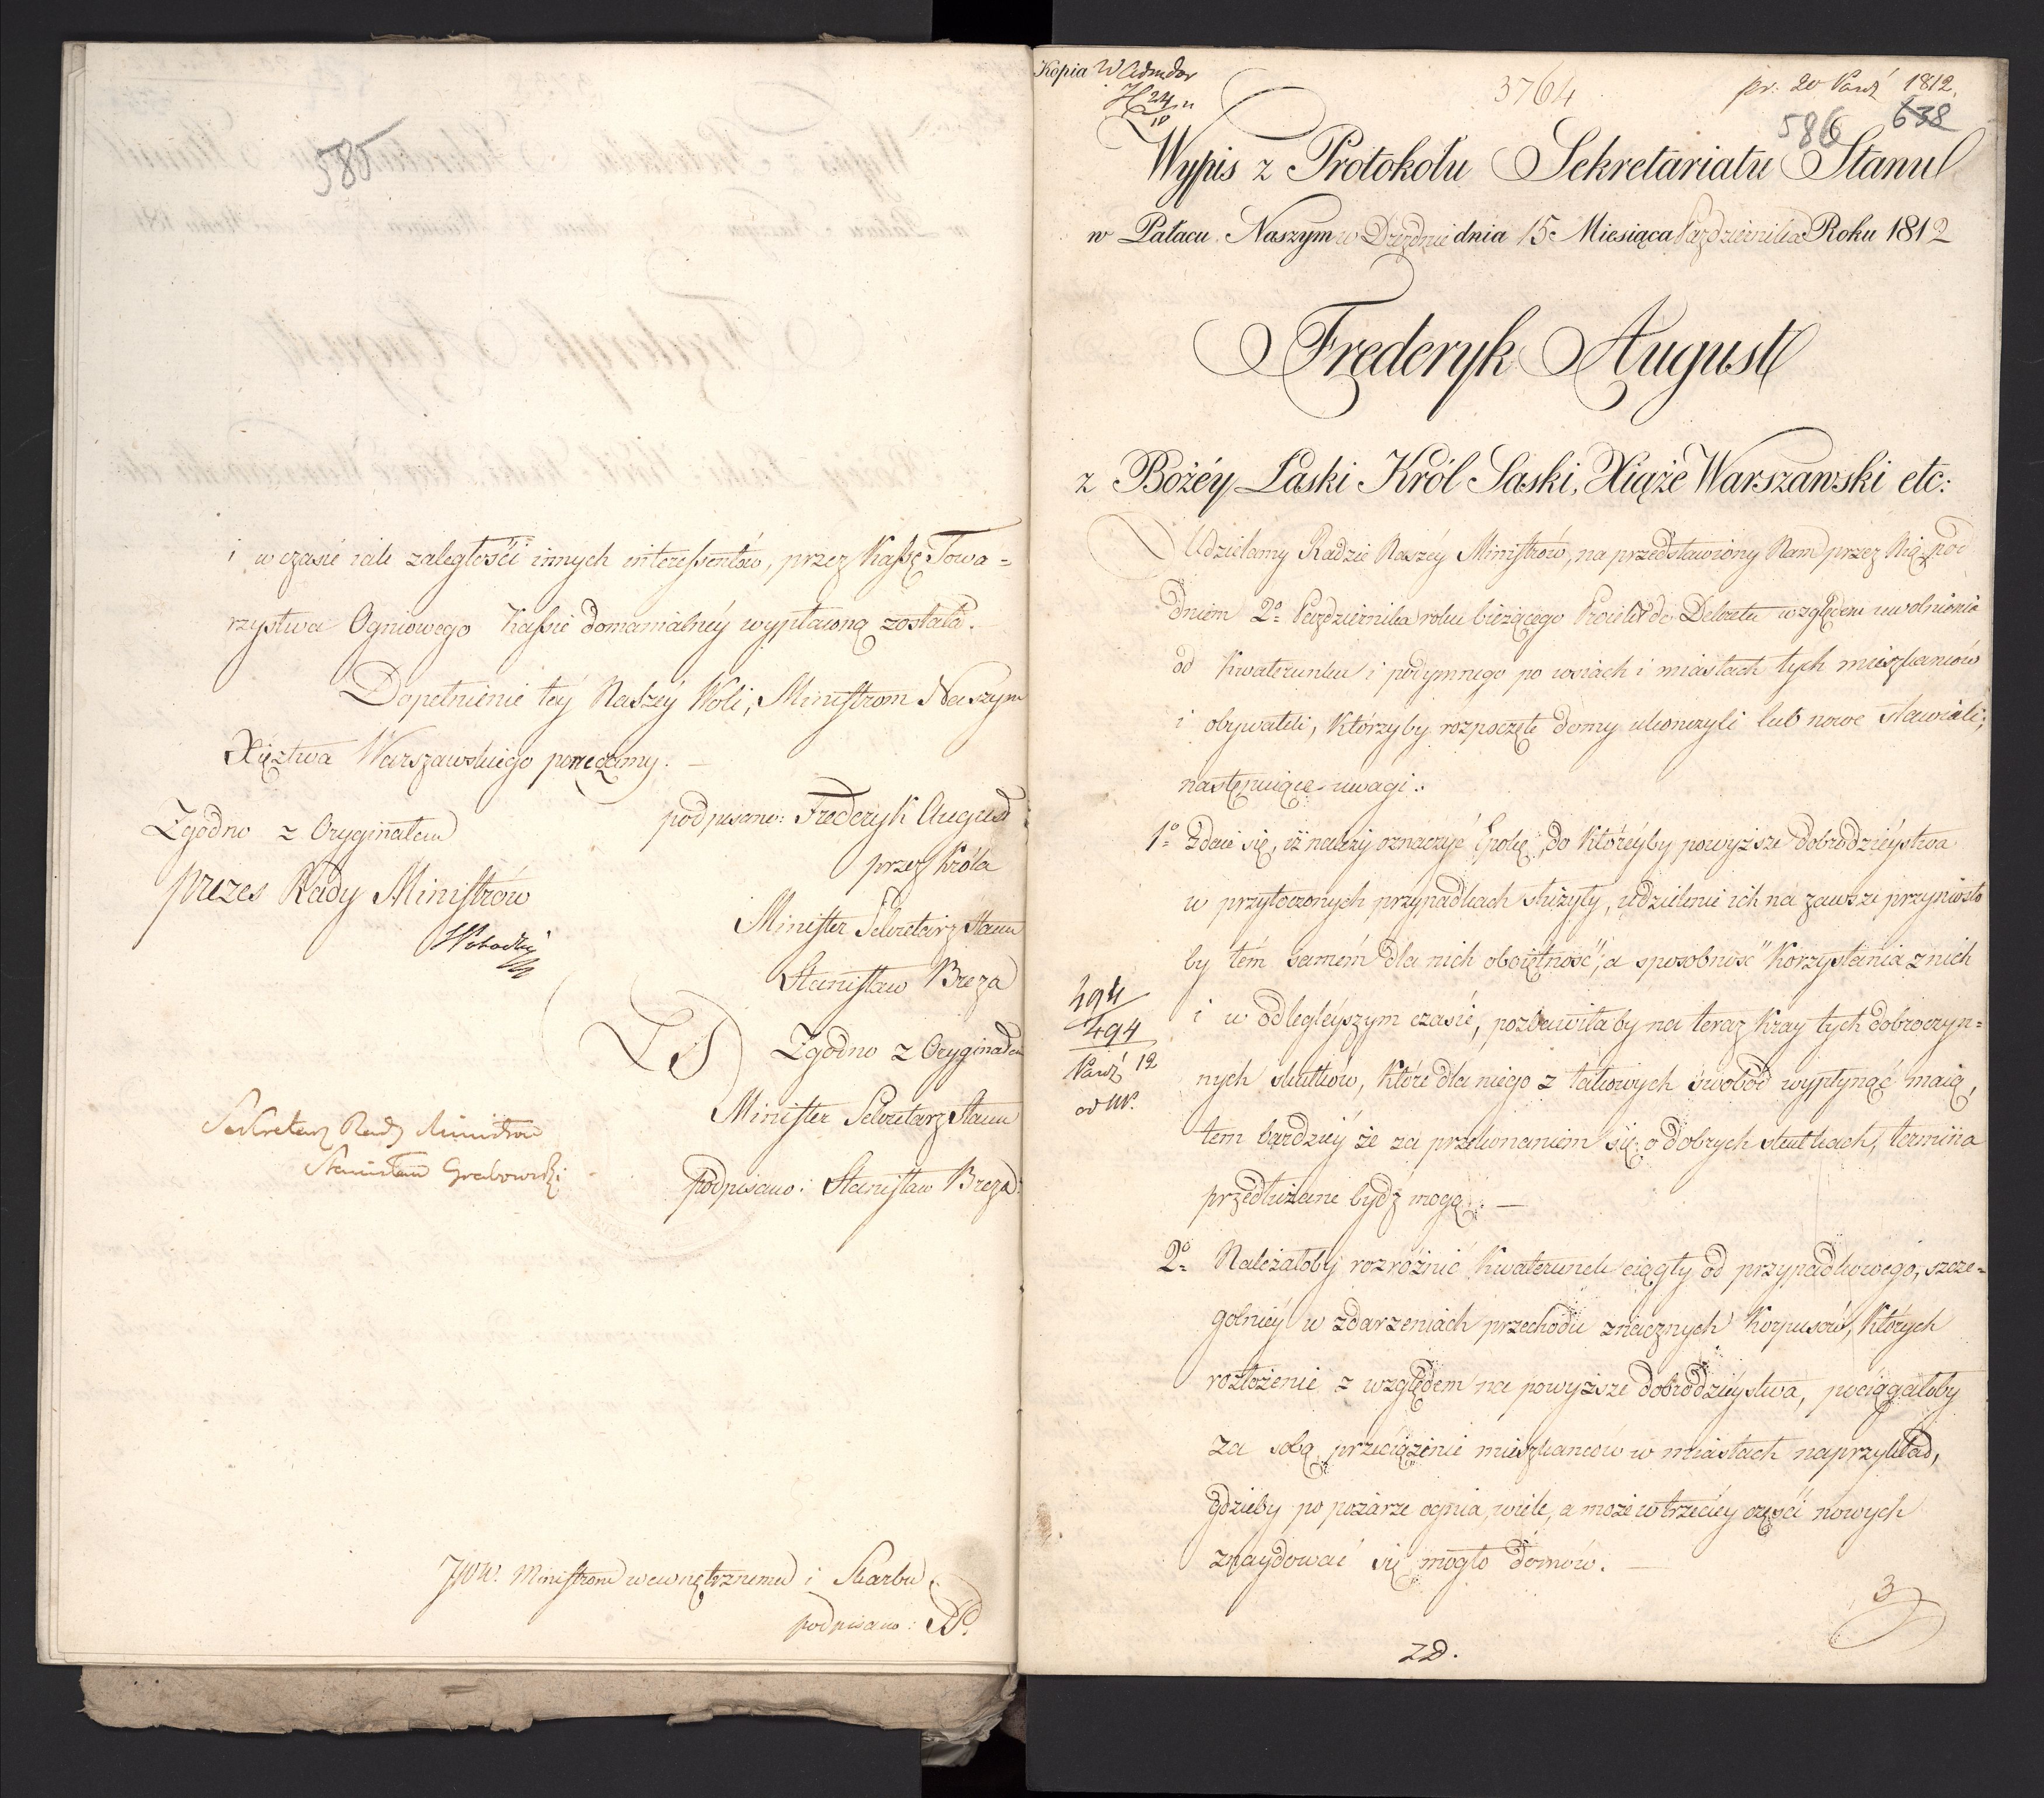 585
i w czasie iak zaległości innych interessentów, przez Kassę Towa=
rzystwa Ogniowego Kassie domanialnéy wypłaconą została.
Dopełnienie téy Naszéy Woli, Ministrom Naszym
Xięztwa Warszawskiego poruczamy. —
podpisano: Frederyk August
przez Króla
Minister Sekretarz Stanu
Stanisław Breza
LS Zgodno z Oryginałem
Minister Sekretarz Stanu
podpisano: Stanisław Breza
Zgodno z Oryginałem
prezes Rady Ministrów
Sekretarz Rady Ministrow
Stanisław Grabowski
JWW. Ministrom wewnętrznemu i Skarbu
podpisano:
Kopia
24
10
3764
pr: 20 Paźd 1812.
586 638
Wypis z Protokołu Sekretariatu Stanu
w Pałacu Naszym w Dreźnie dnia 15 Miesiąca Października Roku 1812
Frederyk August
z Bożéy Łaski Król Saski, Xiąże Warszawski etc:
Udzielamy Radzie Naszéy Ministrów, na przedstawiony Nam przez Nię pod
dniem 2º Października roku bieżącego Proiekt do Dekretu względem uwolnienia
od Kwaterunku i podymnego po wsiach i miastach tych mieszkańców
i obywateli, którzyby rozpoczęte domy ukonczyli lub nowe stawiali;
następuiące uwagi:
1º Zdaie się, iż należy oznaczyć Epokę, do któréyby powyższe dobrodzieystwa
w przytoczonych przypadkach służyły, udzielenie ich na zawsze przyniosło
by tém samém dla nich oboiętność, a sposobność korzystania z nich
i w odległéyszym czasie, pozbawiłaby na teraz Kray tych dobroczyn=
nych skutków, które dla niego z takowych swobód wypłynąć maią,
tem bardziéy że za przekonaniem się o dobrych skutkach, termina
przedłużane bydź mogą. —
494
494
Paźd 12
2º Należałoby rozróżnić Kwaterunek ciągły od przypadkowego, szcze=
golniéy w zdarzeniach przechodu znacznych Korpusów, których
rozłożenie z względem na powyższe dobrodzieystwa, pociągałoby
za sobą przeciążenie mieszkancow w miastach naprzykład,
gdzieby po pożarze ognia, wiele, a może w trzeciey części nowych
znaydować się mogło domów. —
3